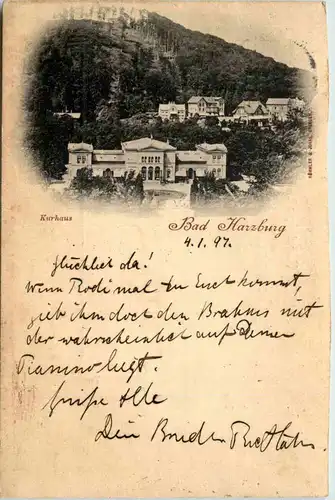 Kurhaus
Bad Harzburg
4. 1. 97.
Glücklich da!
Wenn Rodi mal zu Euch kommt,
gieb ihm doch den Brahms mit
der wahrscheinlich auf Deinem
Pianino liegt.
Grüße Alle
Dein Bruder